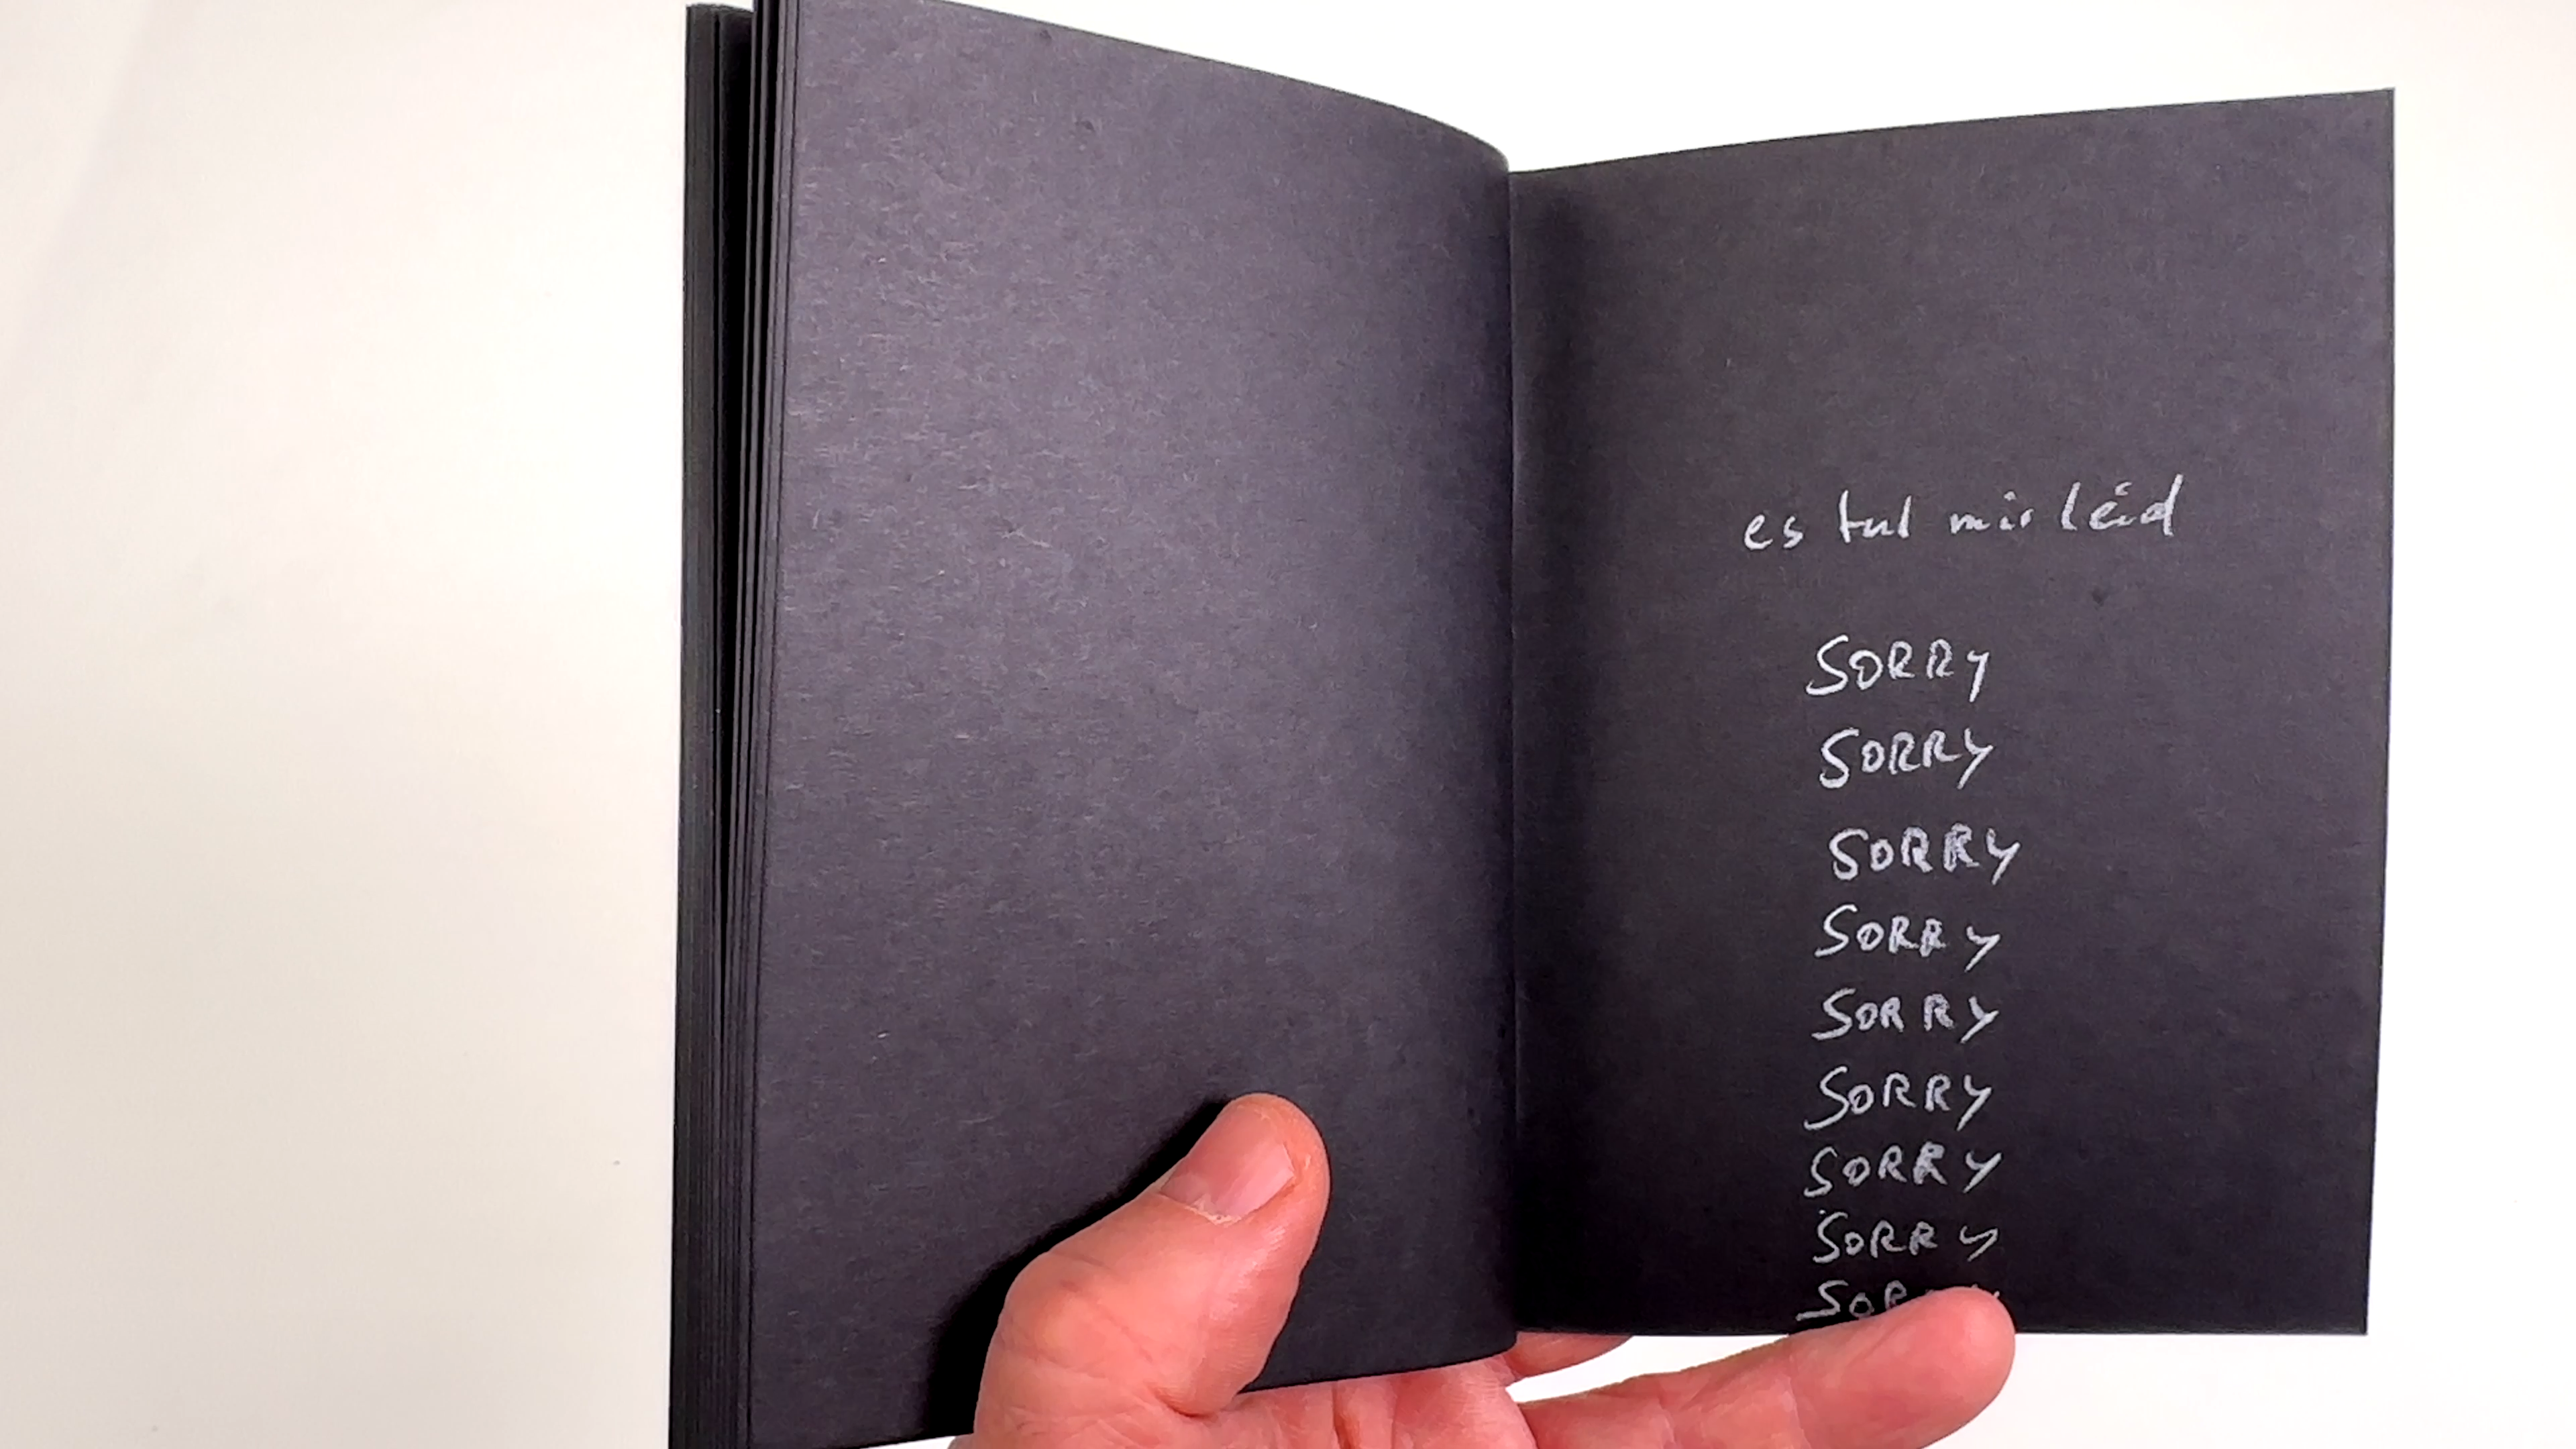 es tut mir leid
SORRY
SORRY
SORRY
SORRY
SORRY
SORRY
SORRY
SORRY